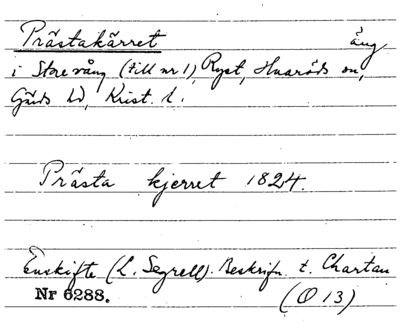 Prästakärret äng
i Store vång (till nr 1), Ryet, Huaröds sn,
Gärds hd, Krist. l.
Prästa kjerret 1824.
Enskifte (L. Segrell). Beskrifn t. Chartan
Nr 6288. (O 13)